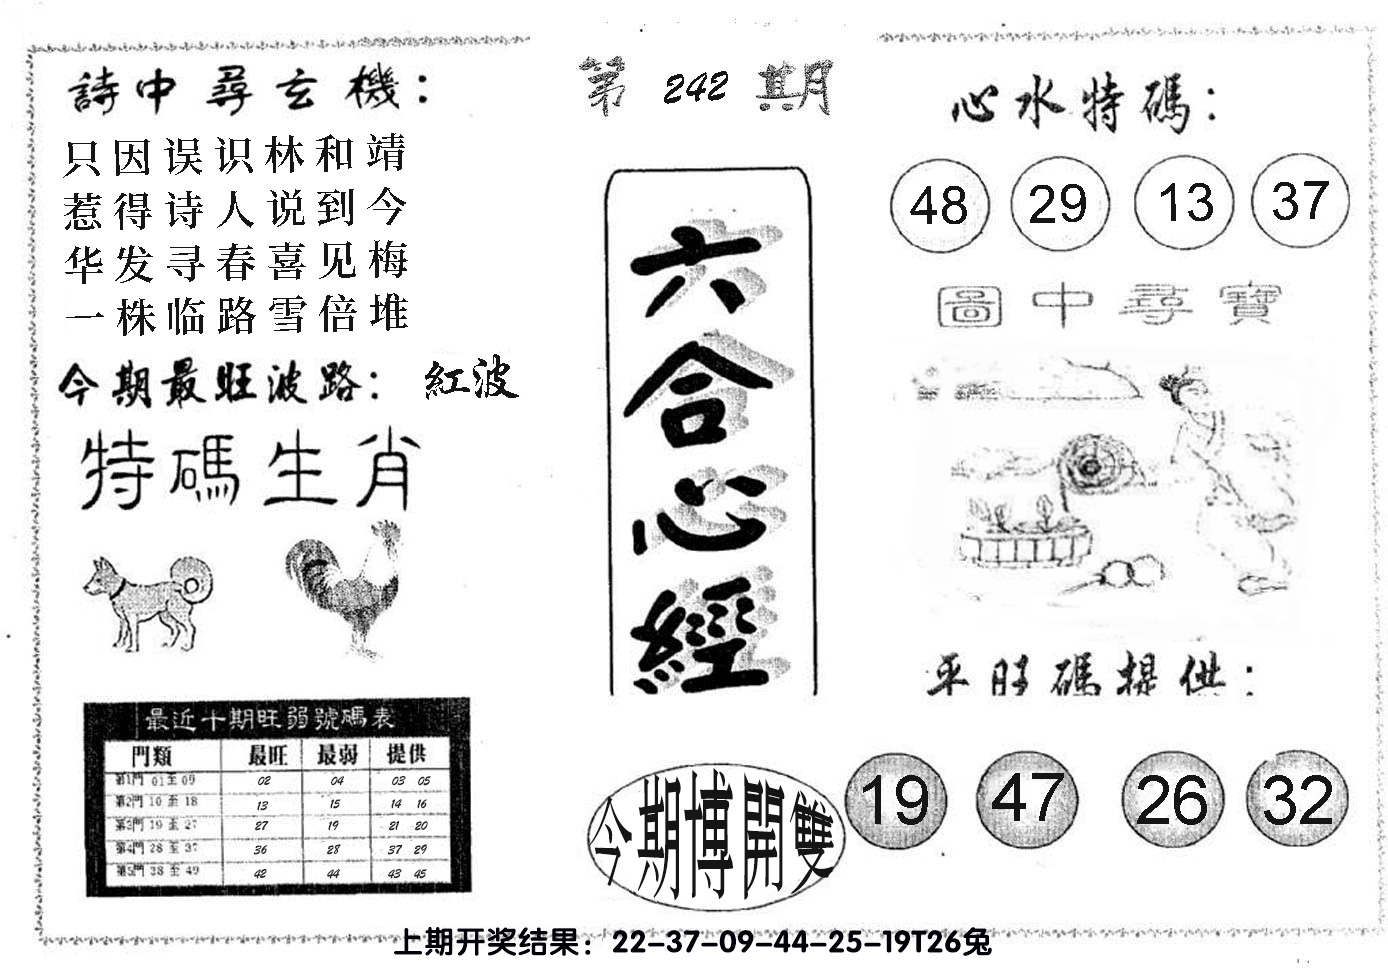 詩中尋玄機：
只因误识林和靖
惹得诗人说到今
华发寻春喜见梅
一株临路雪倍堆
今期最旺波路： 紅波
特碼生肖
最近十期旺弱號碼表
門類 最旺 最弱 提供
第1門 01 至 09 02 04 03 05
第2門 10 至 18 13 15 14 16
第3門 19 至 27 27 19 21 20
第4門 28 至 37 36 28 37 29
第5門 38 至 49 42 44 43 45
第 242 期
六合心經
今期博開雙
心水特碼：
48 29 13 37
圖中尋寶
平旺碼提供：
19 47 26 32
上期开奖结果：22-37-09-44-25-19T26兔